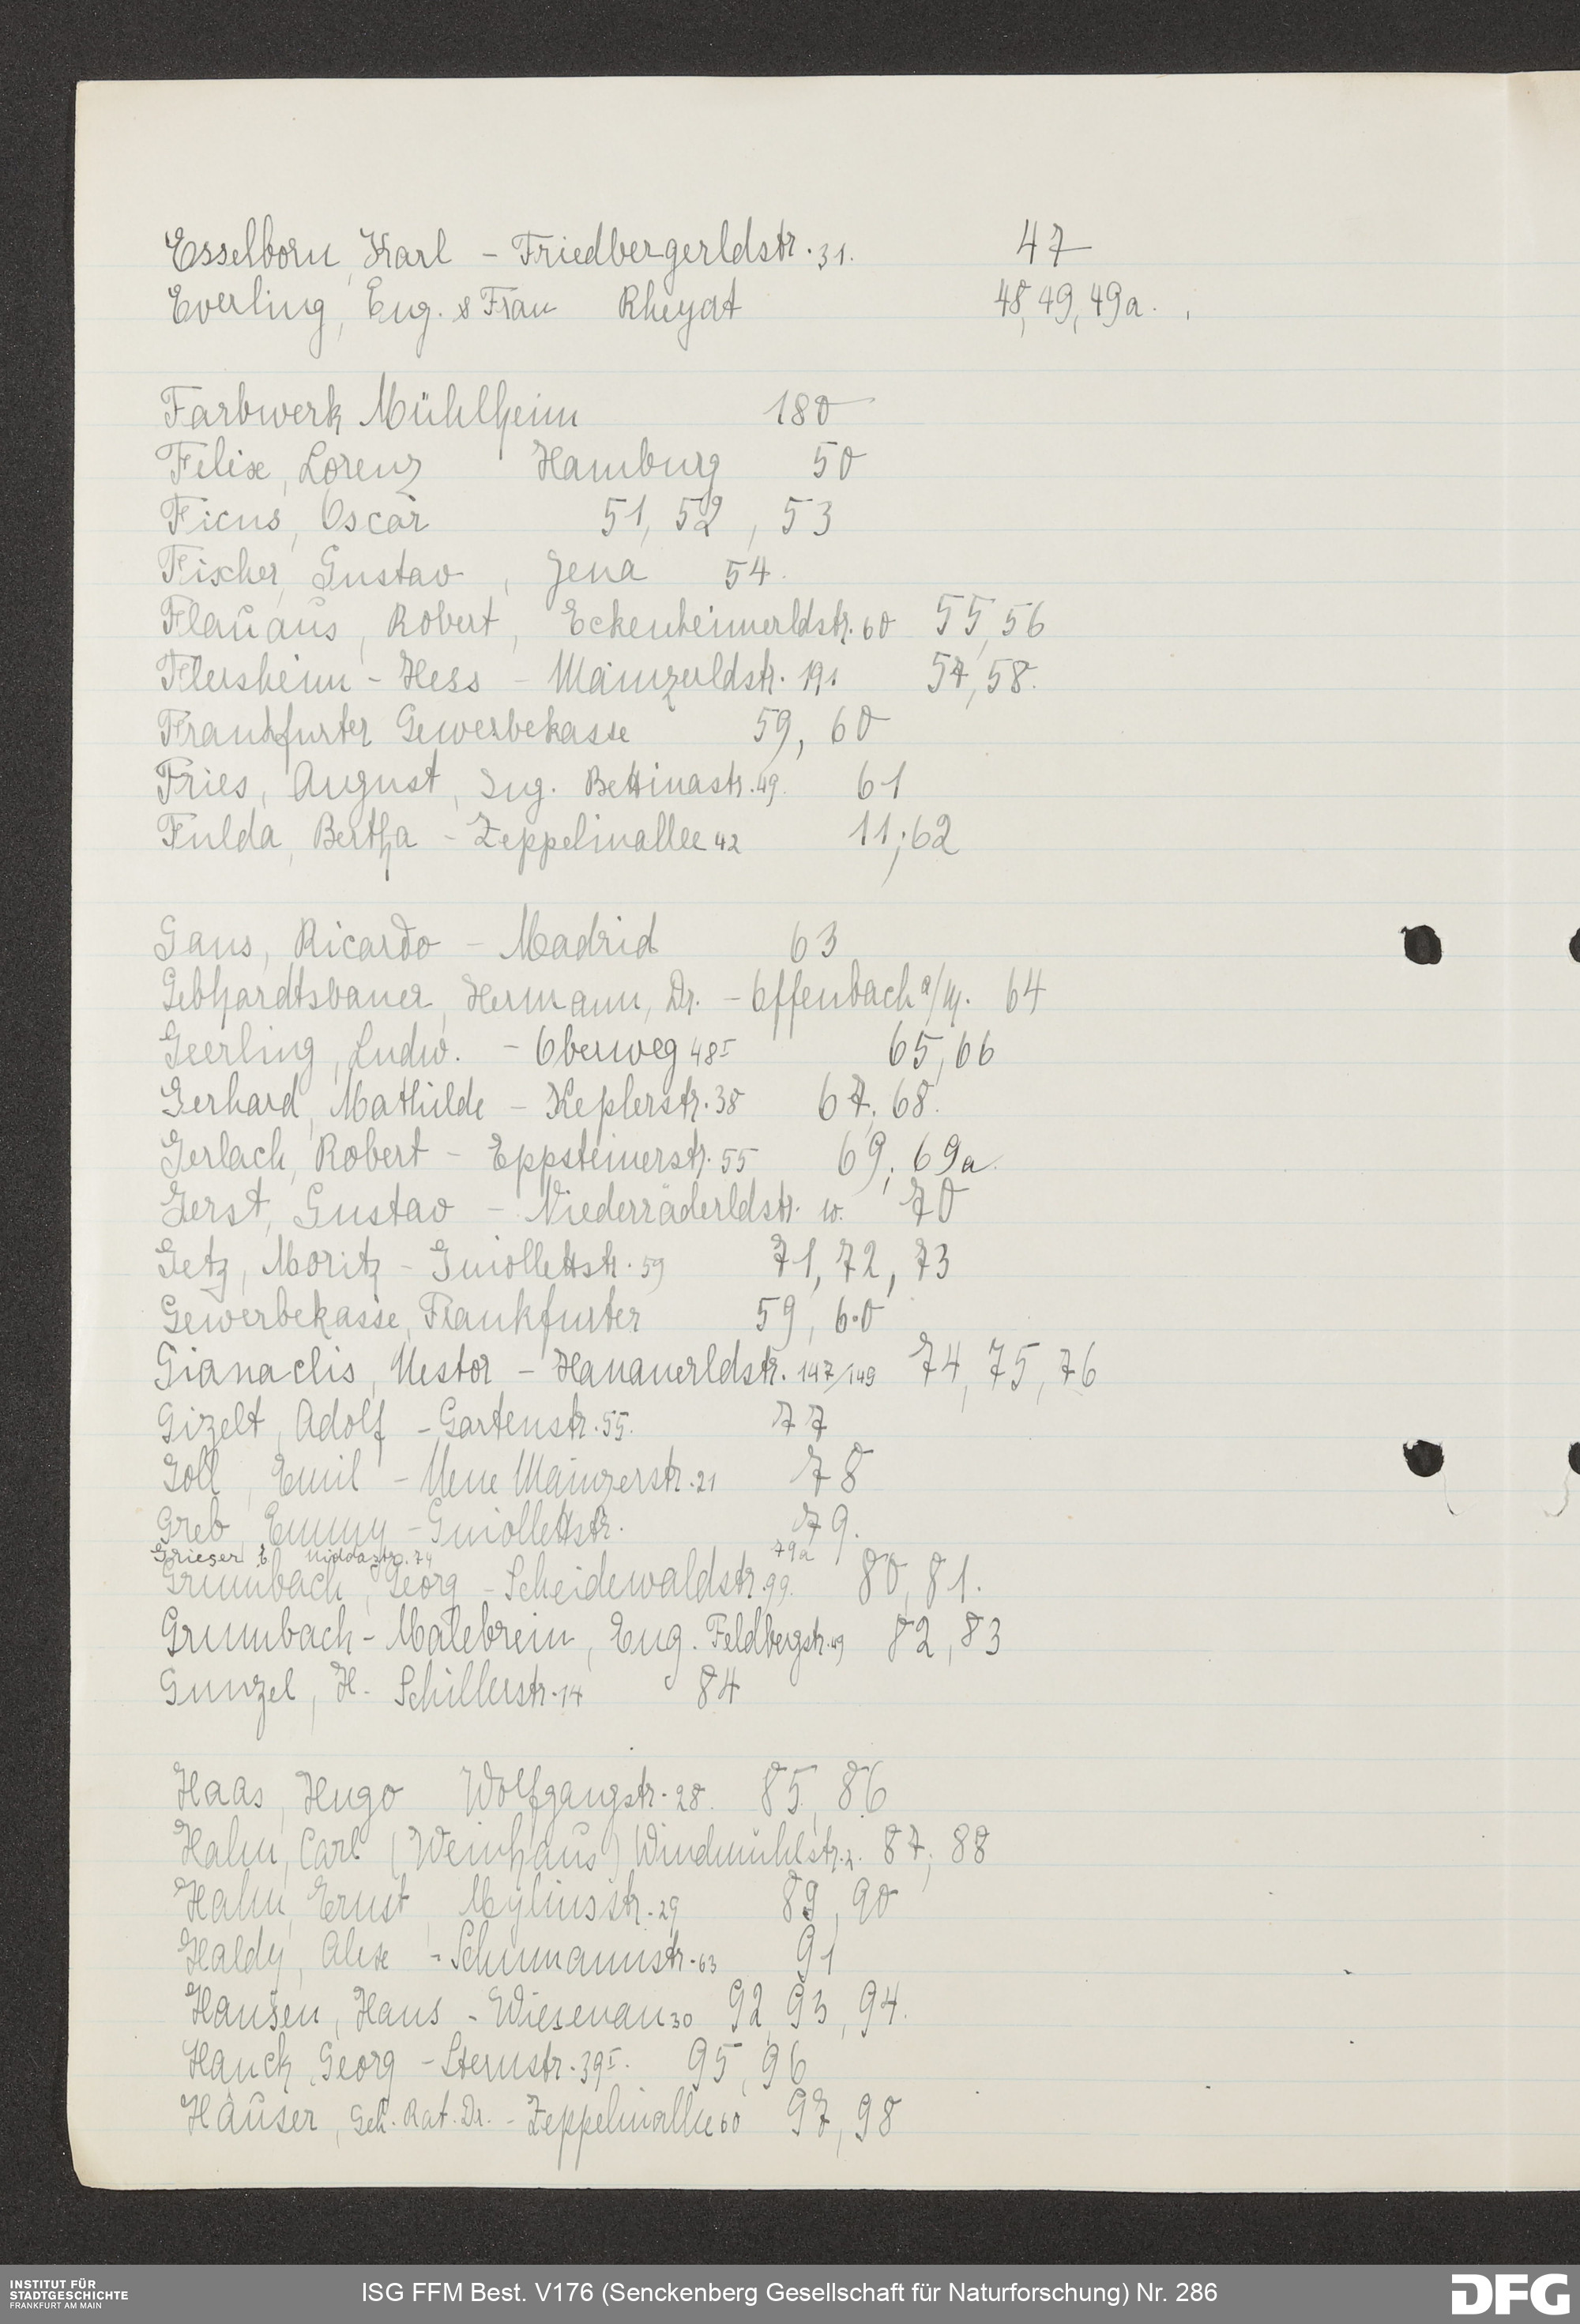 Esselborn, Karl - Friedbergerldstr. 31. 47
Everling, Eug. & Frau Rheydt 48, 49, 49a.
Farbwerk Mühlheim 180
Felix, Lorenz Hamburg 50
Ficus, Oscar 51, 52, 53
Fischer, Gustav, Jena 54.
Flauaus, Robert, Eckenheimerldstr. 60 55, 56
Flersheim - Hess - Mainzerldstr. 191 57, 58.
Frankfurter Gewerbekasse 59, 60
Fries, August, Ing. Bettinastr. 49. 61
Fulda, Bertha - Zeppelinallee 42 11, 62
Gans, Ricardo - Madrid 63
Gebhardtsbauer, Hermann, Dr. - Offenbach a/M. 64
Geerling, Ludw. - Oberweg 48 I 65, 66
Gerhard, Mathilde - Keplerstr. 38 67, 68.
Gerlach, Robert - Eppsteinerstr. 55 69, 69a.
Gerst, Gustav - Niederräderldstr. 10. 70
Getz, Moritz - Guiollettstr. 59 71, 72, 73
Gewerbekasse, Frankfurter 59, 60
Gianaclis, Nestor - Hanauerldstr. 147/149 74, 75, 76
Gizelt, Adolf - Gartenstr. 55. 77
Goll, Emil - Neue Mainzerstr. 21 78
Greb, Emmy - Guiollettstr. 79.
Grieser, E Niddastr. 74 79a
Grumbach, Georg - Scheidewaldstr. 99. 80, 81.
Grumbach - Malebrein, Eug. Feldbergstr. 49 82, 83
Gunzel, H. Schillerstr. 14 84
Haas, Hugo Wolfgangstr. 28. 85, 86
Hahn, Carl (Weinhaus) Windmühlstr. 2. 87, 88
Hahn, Ernst, Myliusstr. 29 89, 90
Haldy, Alex - Schumannstr. 63 91
Hansen, Hans - Wiesenau 30 92, 93, 94.
Hauck, Georg - Sternstr. 39 I. 95, 96
Häuser, Geh. Rat. Dr. - Zeppelinallee 60 97, 98
INSTITUT FÜR
STADTGESCHICHTE
FRANKFURT AM MAIN
ISG FFM Best. V176 (Senckenberg Gesellschaft für Naturforschung) Nr. 286
DFG